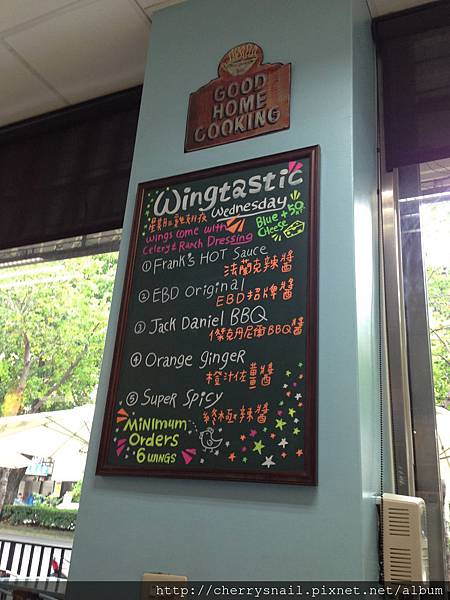 GOOD
HOME
COOKING
Wingtastic
Wednesday
Wings come with
Celery & Ranch Dressing
Blue +50
Cheese
① Frank's HOT Sauce
法蘭克辣醬
② EBD Original
EBD招牌醬
③ Jack Daniel BBQ
傑克丹尼爾BBQ醬
④ Orange ginger
橙汁佐薑醬
⑤ Super Spicy
終極辣醬
Minimum
Orders
6 wings
http://cherrysnail.pixnet.net/album